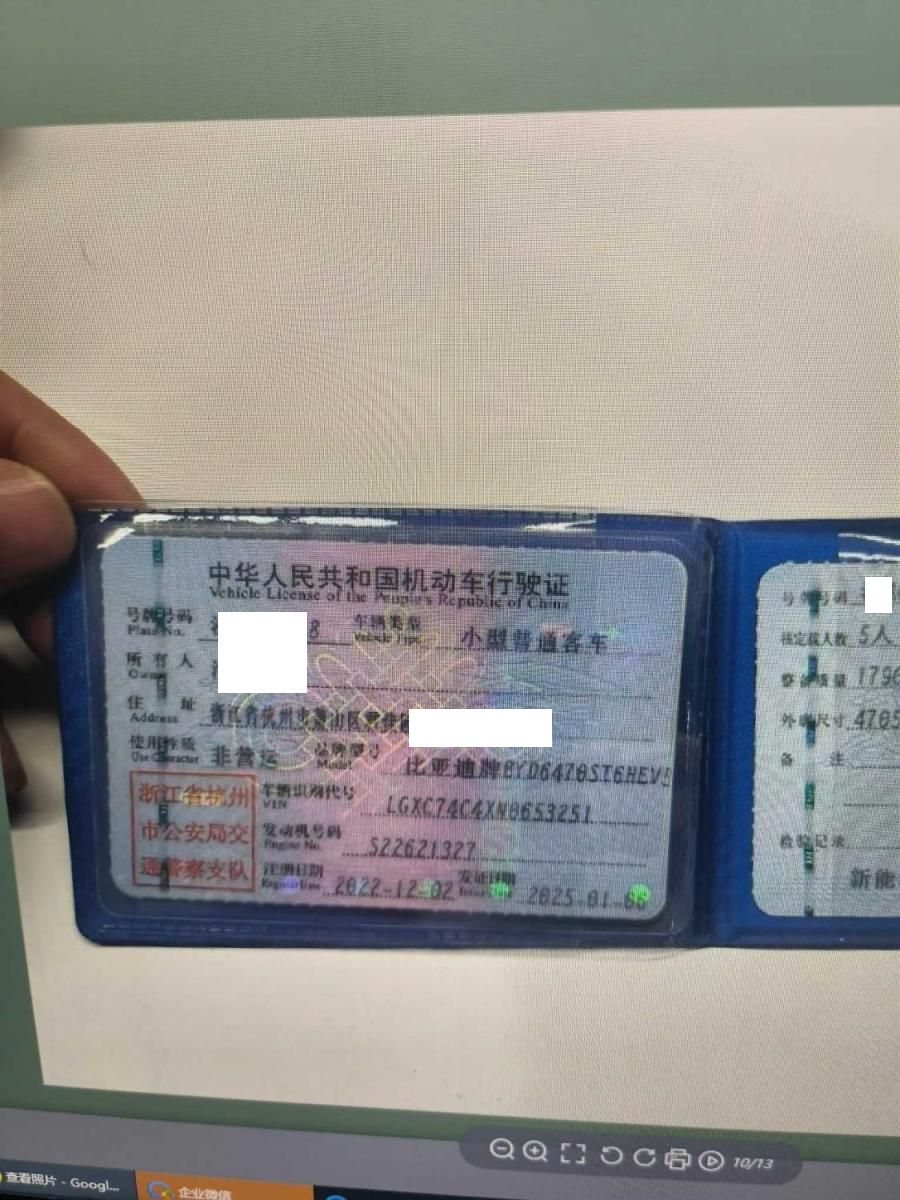 中华人民共和国机动车行驶证
Vehicle License of the People's Republic of China
号牌号码 8 车辆类型 小型普通客车
Plate No. Vehicle Type
所有人
Owner
住址 浙江省杭州市萧山区
Address
使用性质 非营运 品牌型号 比亚迪牌BYD6470ST6HEV5
Use Character Model
浙江省杭州
市公安局交
通警察支队
车辆识别代号 LGXC74C4XN0653251
VIN
发动机号码 S22621327
Engine No.
注册日期 2022-12-02 发证日期 2025-01-
Register Date Issue Date
号牌号码
核定载人数 5人
整备质量 179
外廓尺寸 4705
备注
检验记录
新能
10/13
查看照片 - Googl...
企业微信